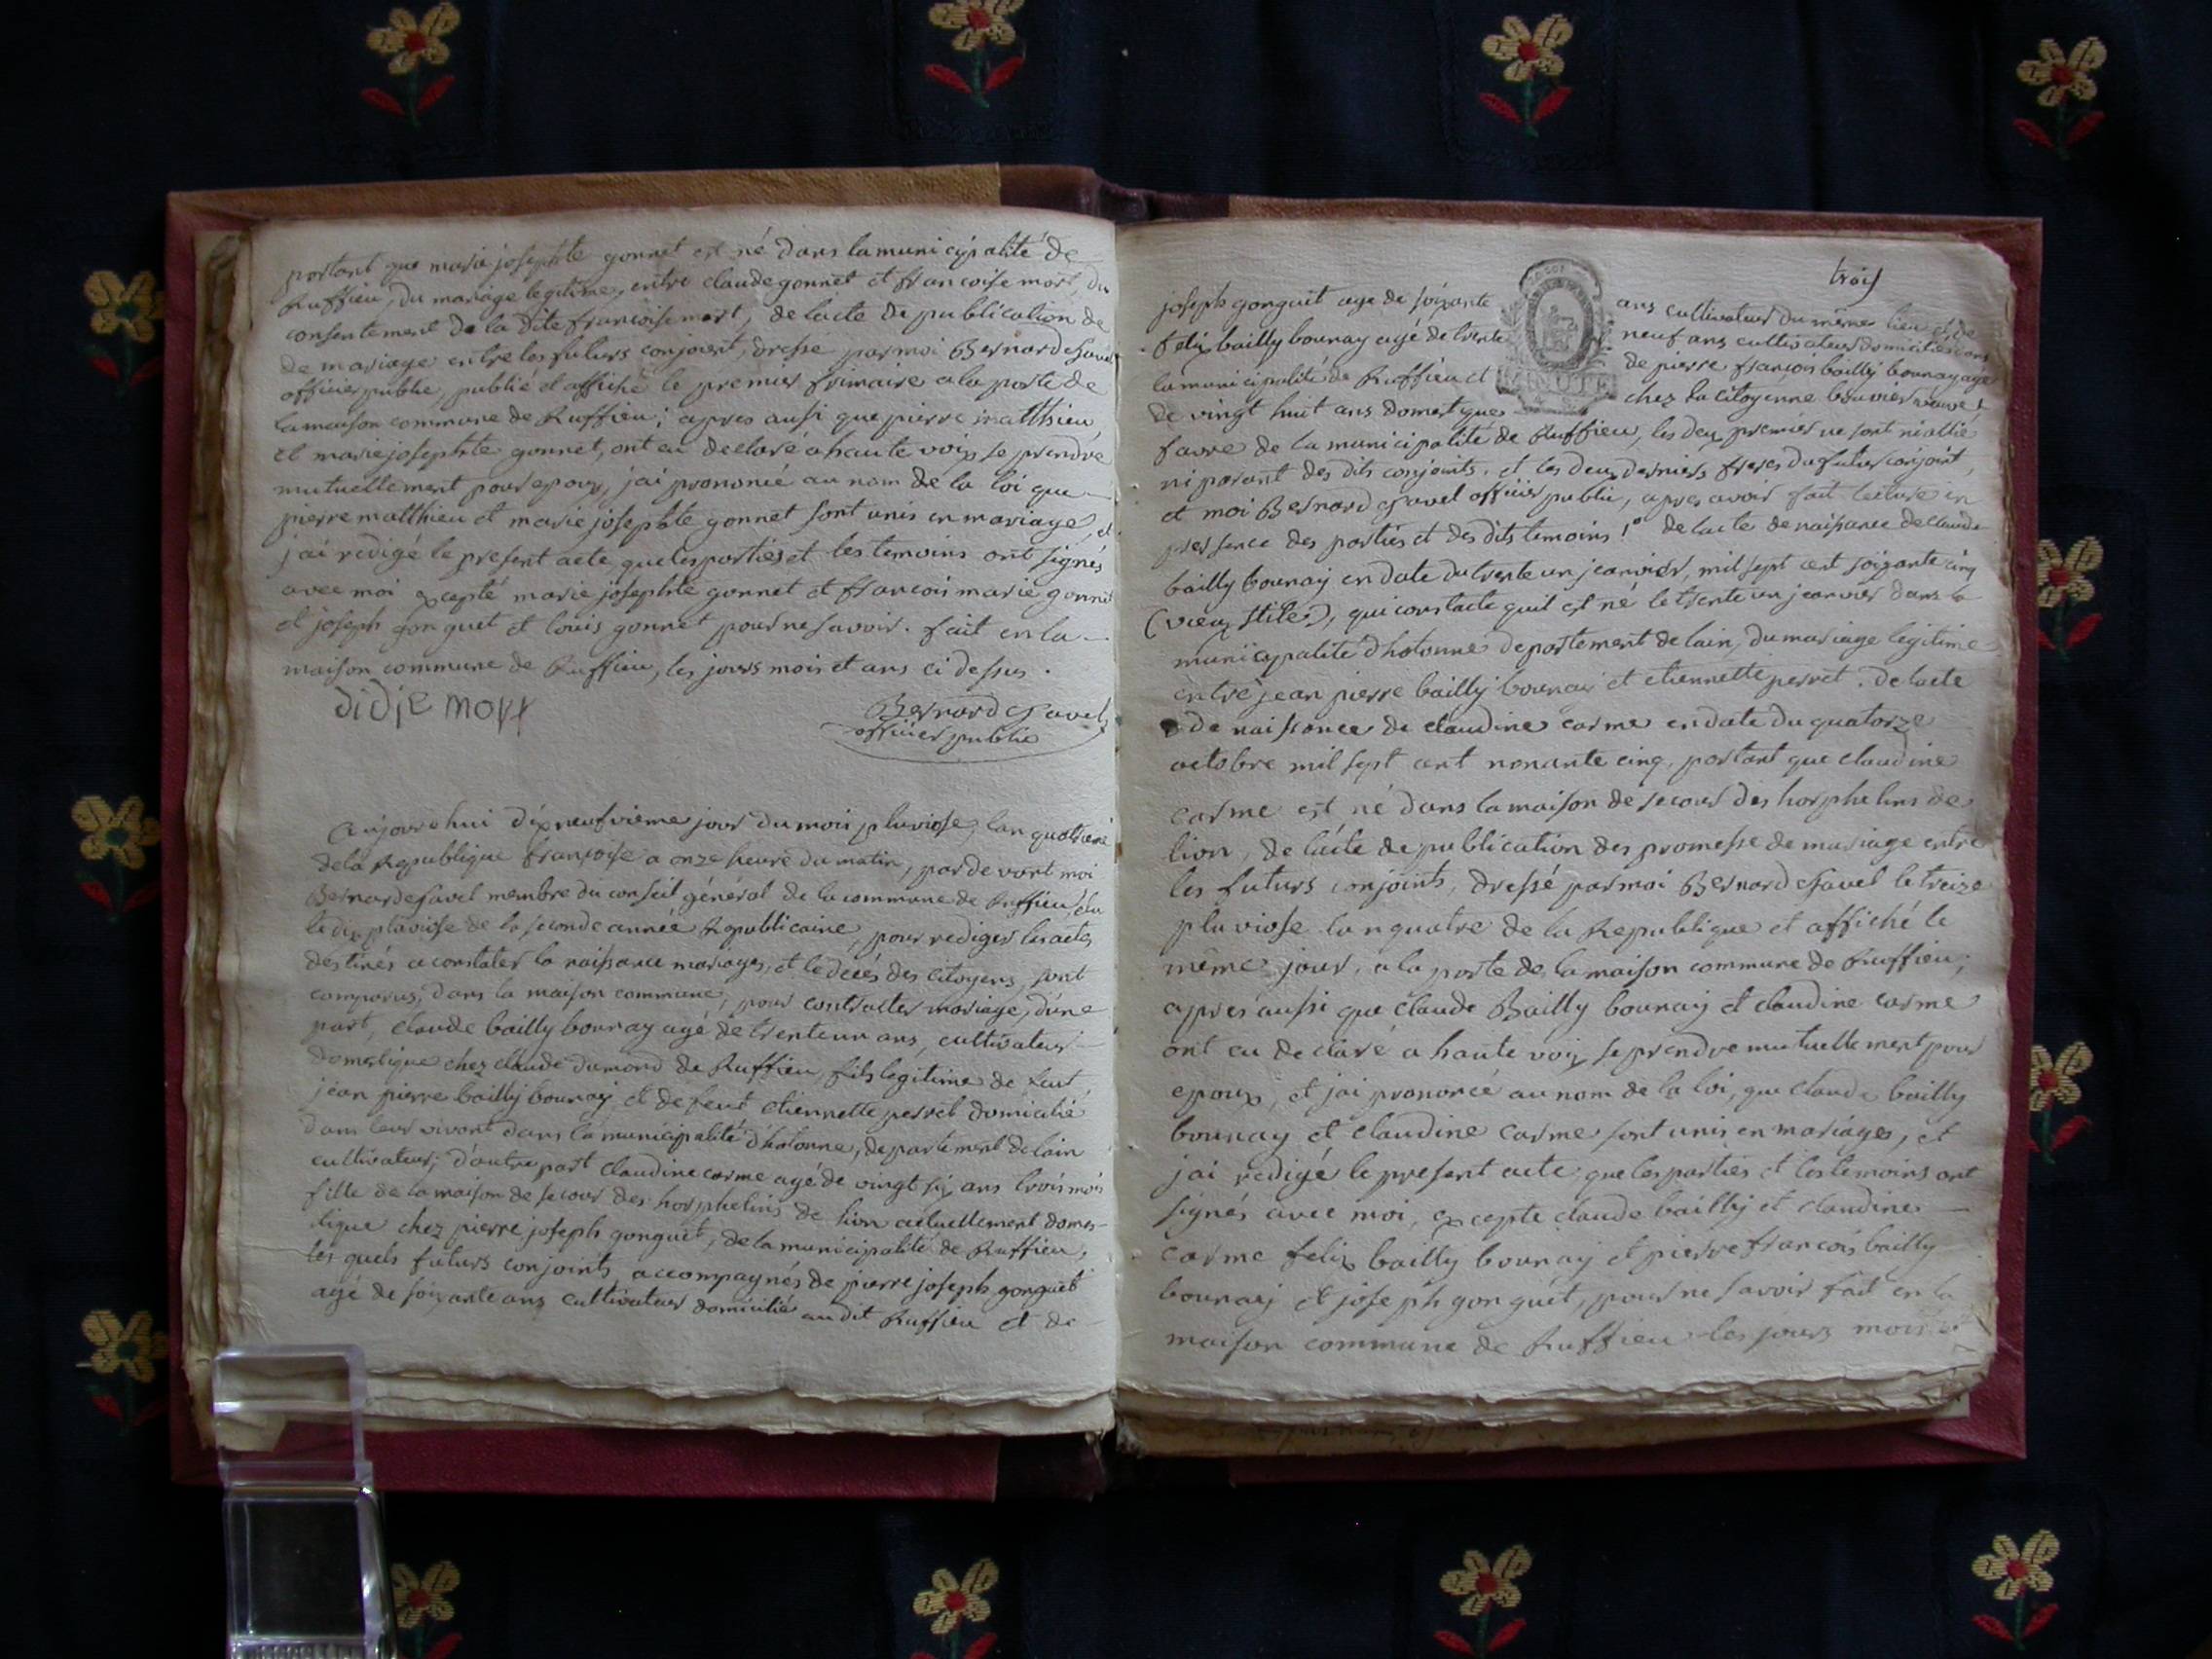 portant que marie josephte gonnet est né dans la municipalité de
Ruffieu, du mariage legitime, entre claude gonnet et francoise mort, du
consentement de la dite francoise mort, de lacte de publication de
de mariage entre les futurs conjoint, dressé par moi Bernard Chavel
officier public, publié et affiché le premier frimaire a la porte de
la maison commune de Ruffieu; apres aussi que pierre matthieu
et marie josephte gonnet, ont eu declaré a haute voix se prendre
mutuellement pour epoux, j'ai prononcé au nom de la loi que
pierre matthieu et marie josephte gonnet sont unis en mariage, et
j'ai redigé le present acte que les parties et les temoins ont signés
avec moi excepté marie josephte gonnet et francois marie gonnet
et joseph gonguet et louis gonnet pour ne savoir. fait en la
maison commune de Ruffieu, les jours mois et ans ci dessus.
didie mort
Bernard Chavel
officier public
Aujourdhui dixneufvieme jour du mois pluviose, lan quatrieme
de la Republique francoise a onze heure du matin, par devant moi
Bernard Chavel membre du conseil général de la commune de Ruffieu, élu
le dix pluviose de la seconde année Republicaine, pour rediger les actes
destinés a constater la naissance mariages, et le décés des citoyens, sont
comparus, dans la maison commune, pour contracter mariage, d'une
part, claude bailly bounay agé de trente un ans, cultivateur
domestique chez claude dumond de Ruffieu, fils legitime de feut
jean pierre bailly bounay, et de feue etiennette perret domicilié
dans leur vivant dans la municipalité d'hotonne, departement de lain
cultivateur; d'autre part claudine carme agé de vingt six ans trois mois
fille de la maison de secour des horphelins de lion actuellement domes-
tique chez pierre joseph gonguet, de la municipalité de Ruffieu,
les quels futurs conjoints accompagnés de pierre joseph gonguet
agé de soixante ans cultivateur domicilié audit Ruffieu et de
trois
joseph gonguet age de soixante ans cultivateur du même lieu et de
felix bailly bounay agé de trente neuf ans cultivateur domicilié dans
la municipalité de Ruffieu et de pierre françois bailly bounay agé
MINUTE
de vingt huit ans domestique chez la citoyenne bouvier veuve
favre de la municipalité de Ruffieu, les deux premier ne sont ni allié
ni parant des dits conjoints. et les deux derniers freres du futur conjoint,
et moi Bernard Chavel officier public, apres avoir fait lecture en
pressence des parties et des dits temoins 1° de lacte de naissance de claude
bailly bounay en date du trente un jeanvier, mil sept cent soixante cinq
(vieux stile), qui constacte quil est né le trente un jeanvier dans la
municipalité dhotonne departement de lain, du mariage legitime
entre jean pierre bailly bounay et etiennette perret. de lacte
de naissance de claudine carme en date du quatorze
octobre mil sept cent nonante cinq, portant que claudine
carme est né dans la maison de secour des horphelins de
lion, de lacte de publication des promesse de mariage entre
les futurs conjoints, dressé par moi Bernard Chavel le treize
pluviose lan quatre de la Republique et affiché le
même jour, a la porte de la maison commune de Ruffieu;
apres aussi que claude Bailly bounay et claudine carme
ont eu declaré a haute voix se prendre mutuellement pour
epoux, et j'ai prononcé au nom de la loi, que claude bailly
bounay et claudine carme sont unis en mariages, et
j'ai redigé le present acte que les parties et les temoins ont
signés avec moi, excepte claude bailly et claudine
carme felix bailly bounay et pierre francois bailly
bounay et joseph gonguet, pour ne savoir fait en la
maison commune de Ruffieu les jours mois et